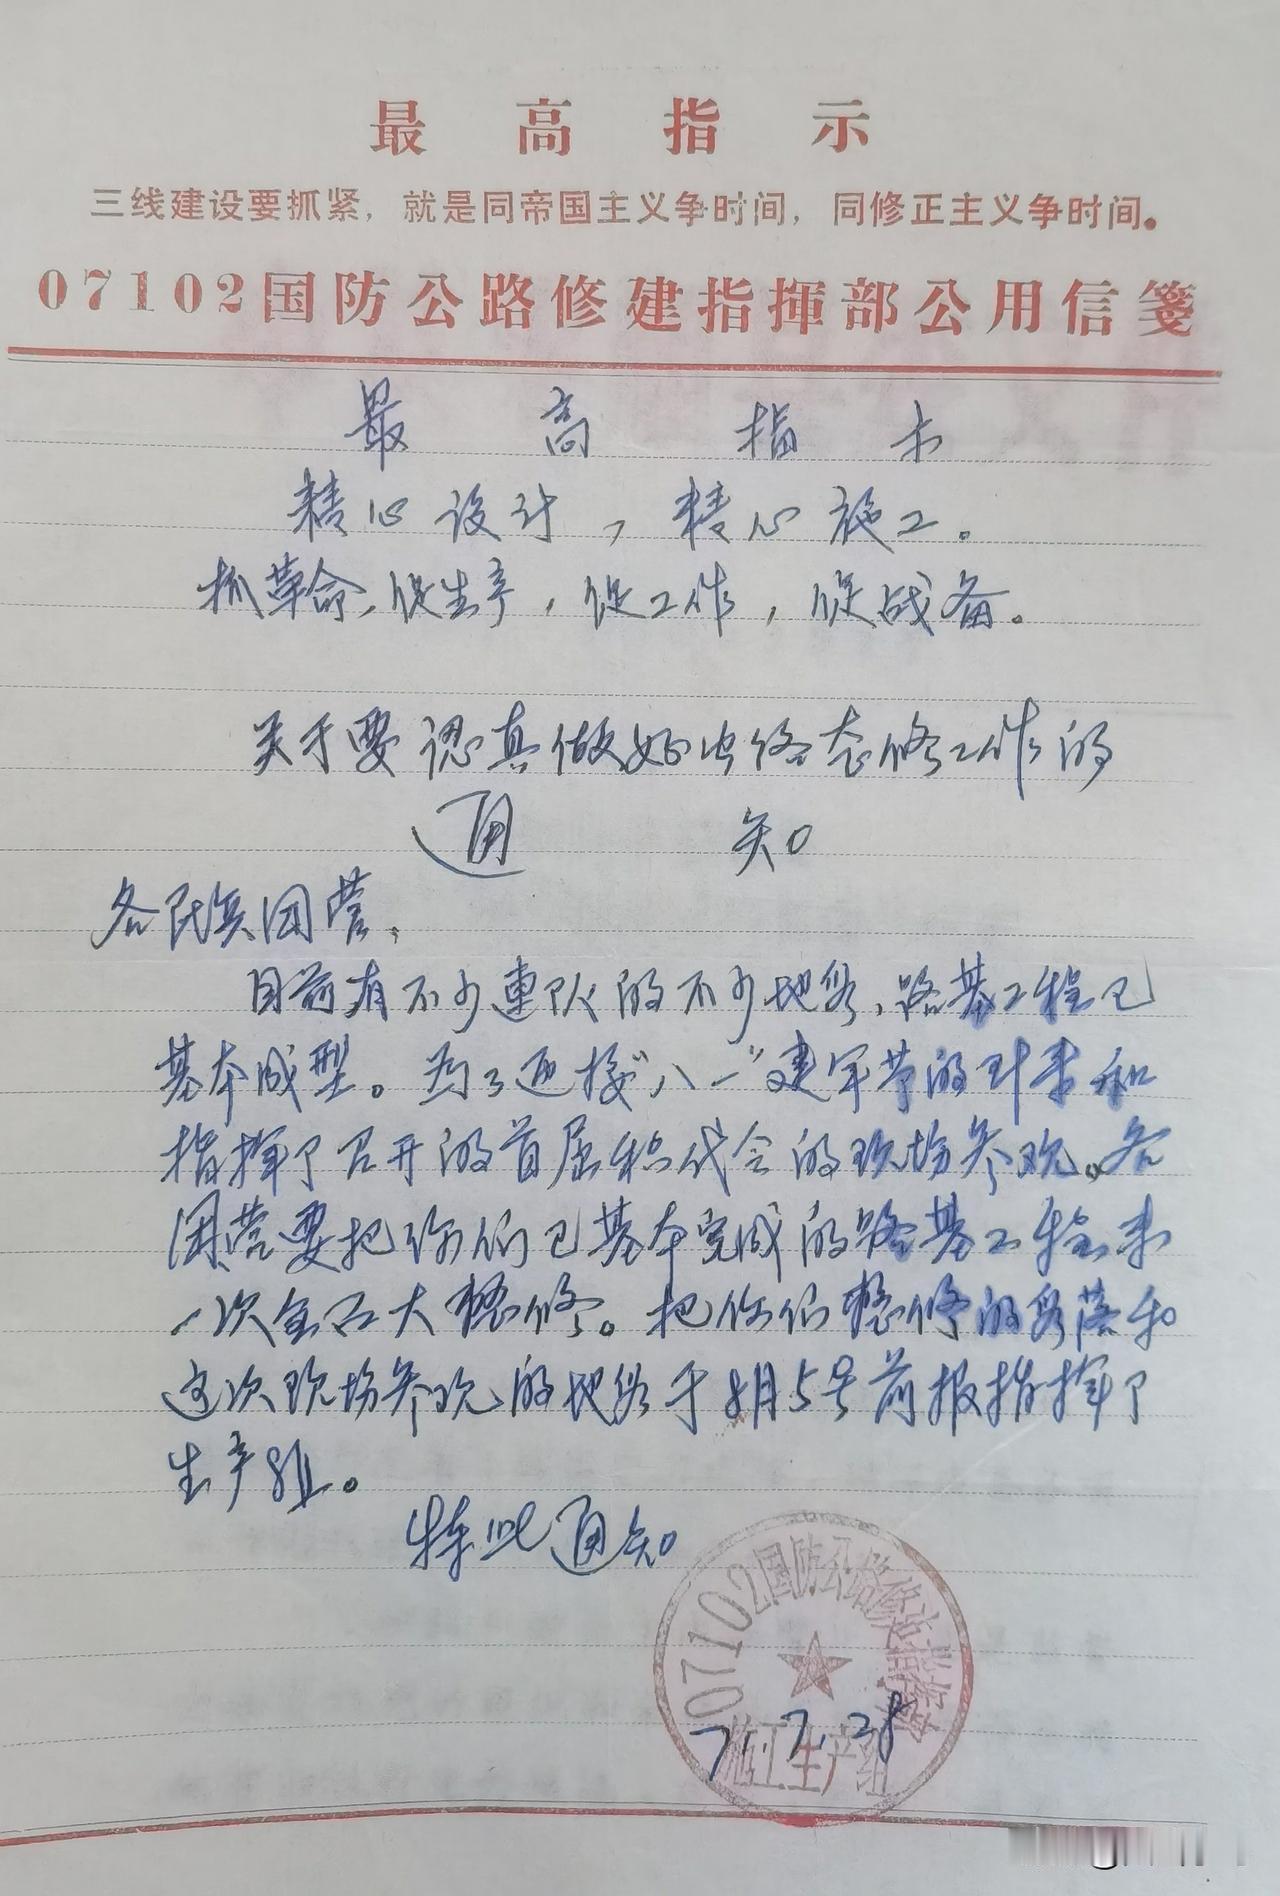 最高指示
三线建设要抓紧，就是同帝国主义争时间，同修正主义争时间。
07102国防公路修建指揮部公用信箋
最高指示
精心设计，精心施工。
抓革命、促生产，促工作，促战备。
关于要認真做好出修整修工作的
通知
各民兵团营、
目前有不少連队的不少地段，路基工程已
基本成型。为了迎接“八一”建军节的到来和
指揮部召开的首届积代会的现场参观。各
团营要把你们已基本完成的路基工程来
一次全面大整修。把你们整修的段落和
这次现场参观的地段于8月5号前报指揮部
生产组。
特此通知
07102国防公路修建指挥部
施工生产组
7.28